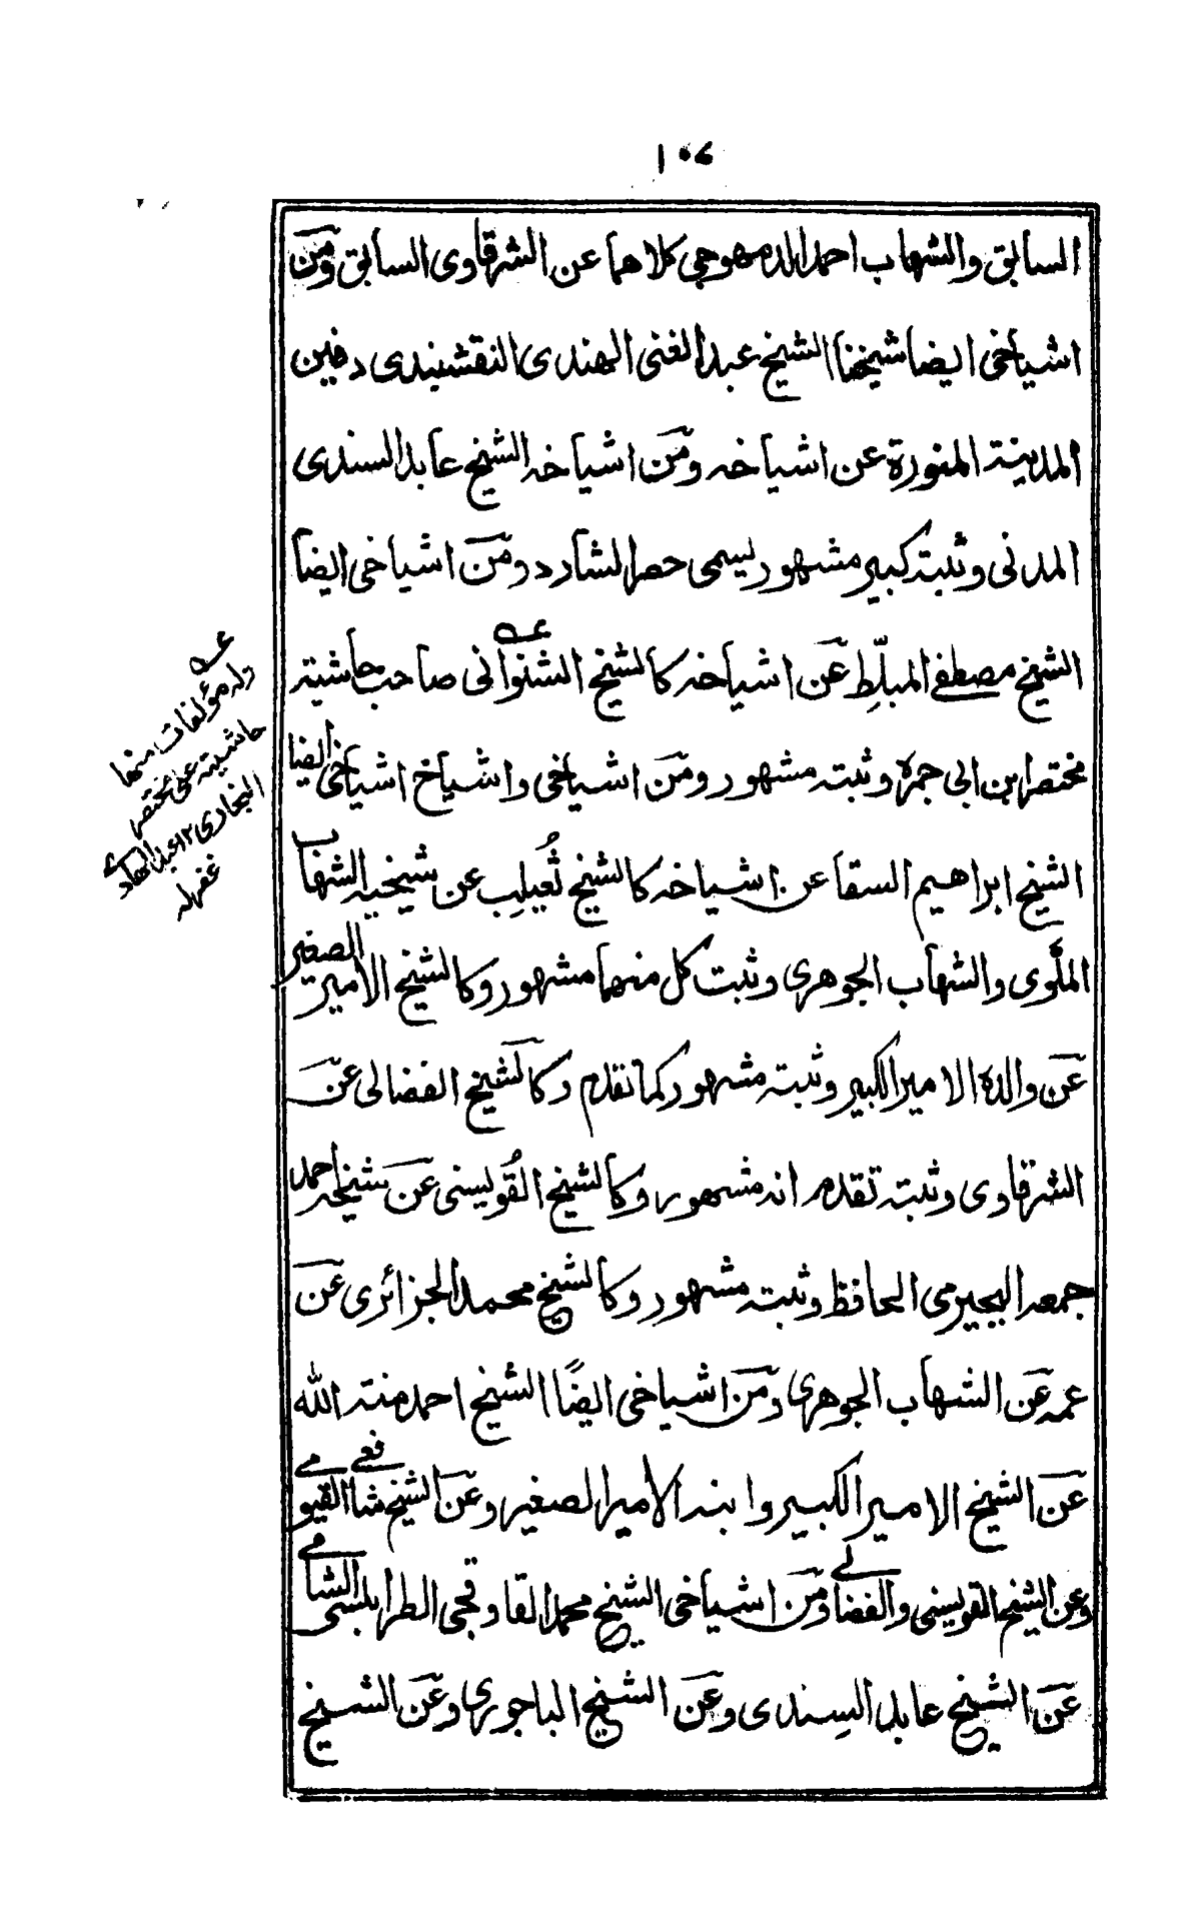 ١٠٧
السابق والشهاب احمد الدمهوجي كلاهما عن الشرقاوى السابق ومن
اشياخى ايضا شيخنا الشيخ عبد الغنى الهندى النقشبندى دفين
المدينة المنورة عن اشياخه ومن اشياخه الشيخ عابد السندى
المدنى وثبته كبير مشهور يسمى حصر الشارد ومن اشياخى ايضا
الشيخ مصطفى المبلِّط عن اشياخه كالشيخ الشنوانى صاحب حاشية
مختصر ابن ابى جمرة وثبته مشهور ومن اشياخى واشياخ اشياخى ايضا
الشيخ ابراهيم السقا عن اشياخه كالشيخ ثُعيلِب عن شيخيه الشهاب
الملَّوى والشهاب الجوهرى وثبت كل منهما مشهور وكالشيخ الامير الصغير
عن والده الامير الكبير وثبته مشهور كما تقدم وكالشيخ الفضالى عن
الشرقاوى وثبته تقدم انه مشهور وكالشيخ القُويسنى عن شيخه احمد
جمعه البجيرمى الحافظ وثبته مشهور وكالشيخ محمد الجزائرى عن
عمه عن الشهاب الجوهرى ومن اشياخى ايضًا الشيخ احمد منة الله
عن الشيخ الامير الكبير وابنه الامير الصغير وعن الشيخ شافعى الفيومى
وعن الشيخ القويسنى والفضالى ومن اشياخى الشيخ محمد القاوقجى الطرابلسى الشامى
عن الشيخ عابد السِندى وعن الشيخ الباجورى وعن الشيخ
عه
وله مؤلفات منها
حاشيته على مختصر
البخارى ١٢ عبد الهادى
غفرله